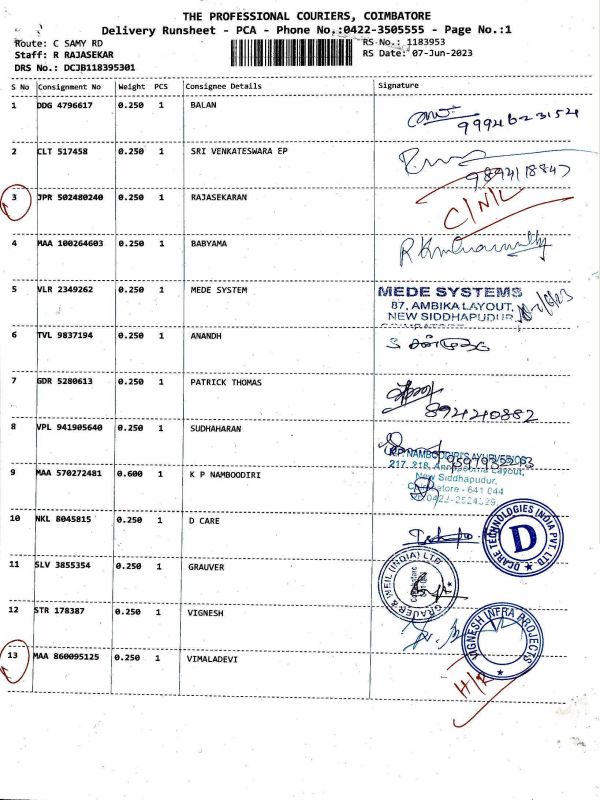 THE PROFESSIONAL COURIERS, COIMBATORE
Delivery Runsheet - PCA - Phone No.:0422-3505555 - Page No.:1
Route: C SAMY RD RS No.: 1183953
Staff: R RAJASEKAR RS Date: 07-Jun-2023
DRS No.: DCJB118395301
S No Consignment No Weight PCS Consignee Details Signature
1 DDG 4796617 0.250 1 BALAN
9994623154
2 CLT 517458 0.250 1 SRI VENKATESWARA EP
9894118847
3 JPR 502480240 0.250 1 RAJASEKARAN
C/N/L
4 MAA 100264603 0.250 1 BABYAMA
5 VLR 2349262 0.250 1 MEDE SYSTEM
MEDE SYSTEMS
87, AMBIKA LAYOUT,
NEW SIDDHAPUDUR,
COIMBATORE
6 TVL 9837194 0.250 1 ANANDH
7 GDR 5280613 0.250 1 PATRICK THOMAS
8944240882
8 VPL 941905640 0.250 1 SUDHAHARAN
9 MAA 570272481 0.600 1 K P NAMBOODIRI
K.P. NAMBOODIRI'S AYURVEDICS
217, 218, Annapoorna Layout,
New Siddhapudur,
Coimbatore - 641 044
10 NKL 8045815 0.250 1 D CARE
DCARE TECHNOLOGIES INDIA PVT. LTD.
D
11 SLV 3855354 0.250 1 GRAUVER
GRAUER & WEIL (INDIA) LTD
Coimbatore
12 STR 178387 0.250 1 VIGNESH
VIGNESH INFRA PROJECTS
13 MAA 860095125 0.250 1 VIMALADEVI